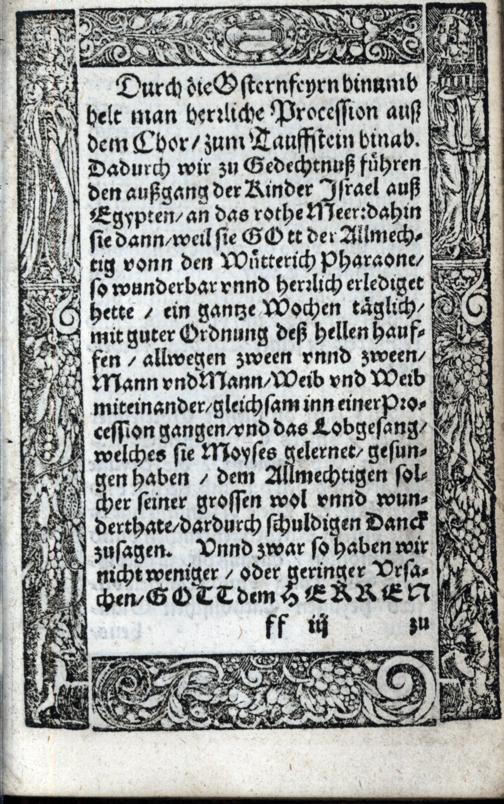 Durch die Osternfeyrn hinumb
helt man herrliche Procession auß
dem Chor / zum Tauffstein hinab.
Dadurch wir zu Gedechtnuß führen
den außgang der Kinder Israel auß
Egypten / an das rothe Meer: dahin
sie dann / weil sie GOtt der Allmech-
tig vonn den Wütterich Pharaone /
so wunderbar vnnd herrlich erlediget
hette / ein gantze Wochen täglich /
mit guter Ordnung deß hellen hauf-
fen / allwegen zween vnnd zween /
Mann vnd Mann / Weib vnd Weib
miteinander / gleichsam inn einer Pro-
cession gangen / vnd das Lobgesang /
welches sie Moyses gelernet / gesun-
gen haben / dem Allmechtigen sol-
cher seiner grossen wol vnnd wun-
derthate / dardurch schuldigen Danck
zusagen. Vnnd zwar so haben wir
nicht weniger / oder geringer Vrsa-
chen / GOTT dem HERREN
ff iij zu